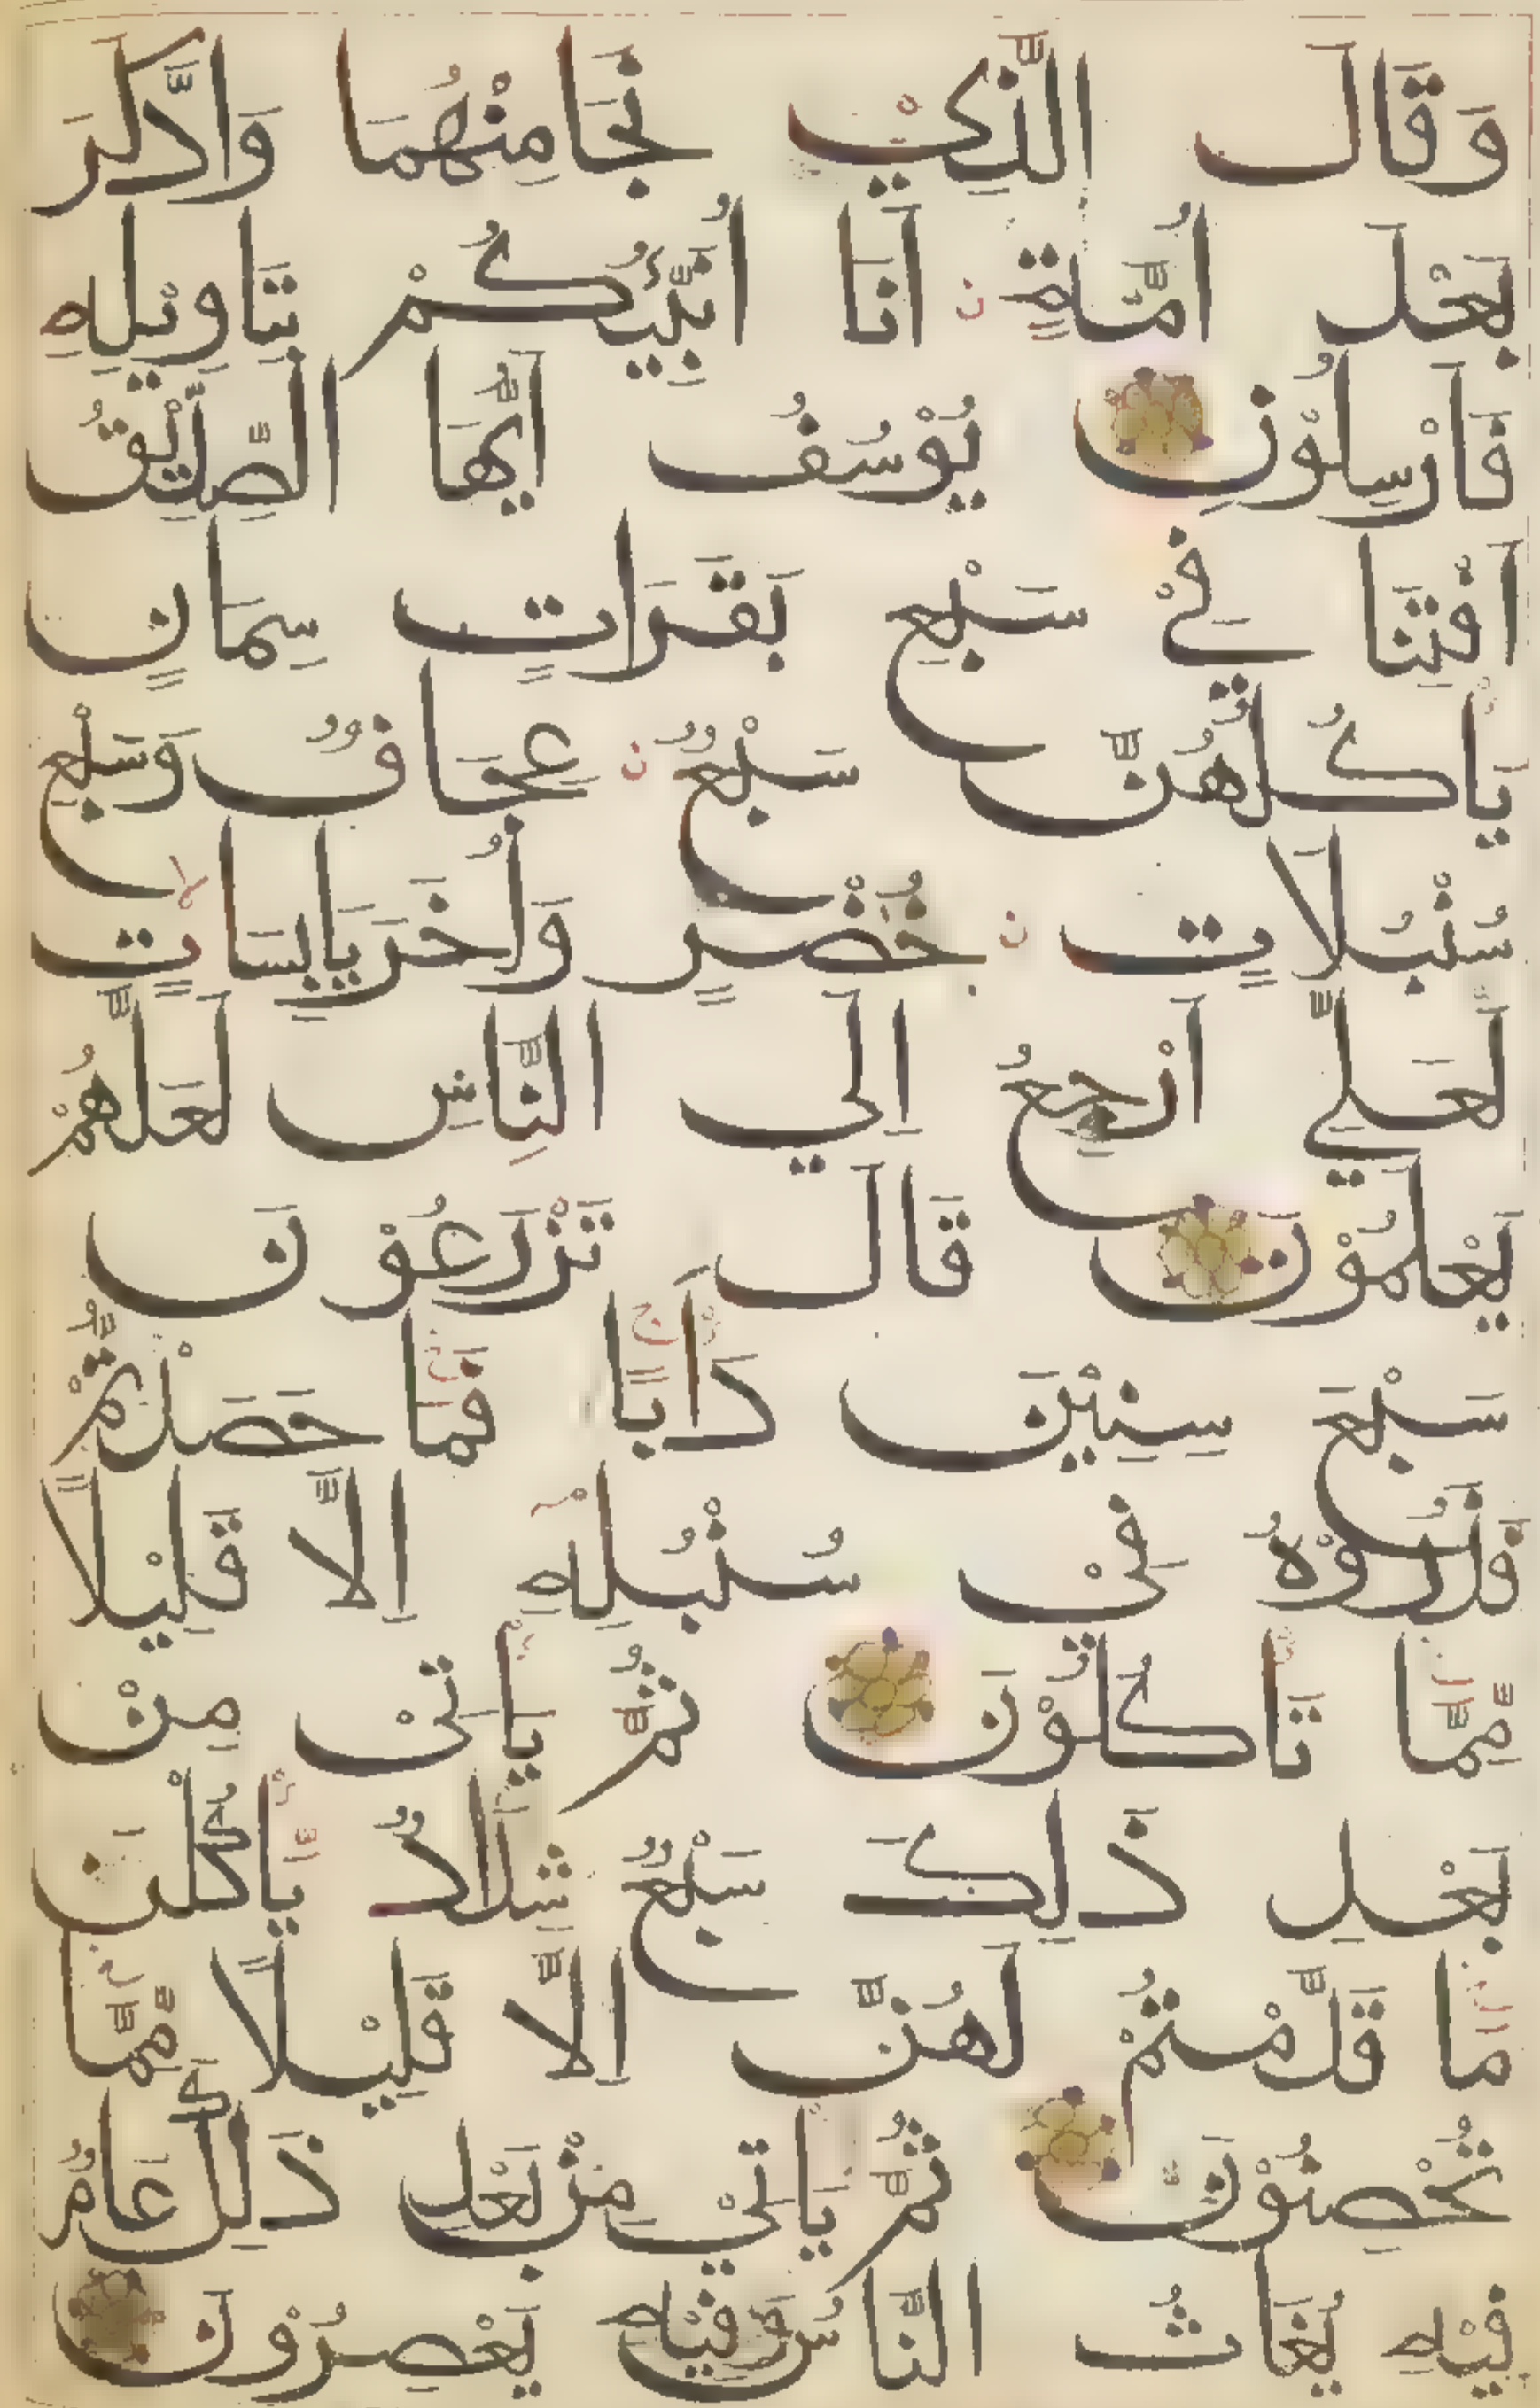 وَقَالَ الَّذِيْ نَجَا مِنْهُمَا وَادَّكَرَ
بَعْدَ اُمَّةٍ اَنَا اُنَبِّئُكُمْ بِتَاوِيْلِهِ
فَاَرْسِلُوْنِ يُوْسُفُ اَيُّهَا الصِّدِّيْقُ
اَفْتِنَا فِيْ سَبْعِ بَقَرَاتٍ سِمَانٍ
يَاكُلُهُنَّ سَبْعٌ عِجَافٌ وَسَبْعِ
سُنْبُلَاتٍ خُضْرٍ وَاُخَرَ يَابِسَاتٍ
لَعَلِّي اَرْجِعُ اِلَي النَّاسِ لَعَلَّهُمْ
يَعْلَمُوْنَ قَالَ تَزْرَعُوْنَ
سَبْعَ سِنِيْنَ دَاَبًا فَمَا حَصَدْتُّمْ
فَذَرُوْهُ فِيْ سُنْبُلِهِ اِلَّا قَلِيْلًا
مِّمَّا تَاكُلُوْنَ ثُمَّ يَاتِيْ مِنْ
بَعْدِ ذَلِكَ سَبْعٌ شِدَادٌ يَّاكُلْنَ
مَا قَدَّمْتُمْ لَهُنَّ اِلَّا قَلِيْلًا مِّمَّا
تُحْصِنُوْنَ ثُمَّ يَاتِيْ مِنْ بَعْدِ ذَلِكَ عَامٌ
فِيْهِ يُغَاثُ النَّاسُ وَفِيْهِ يَعْصِرُوْنَ